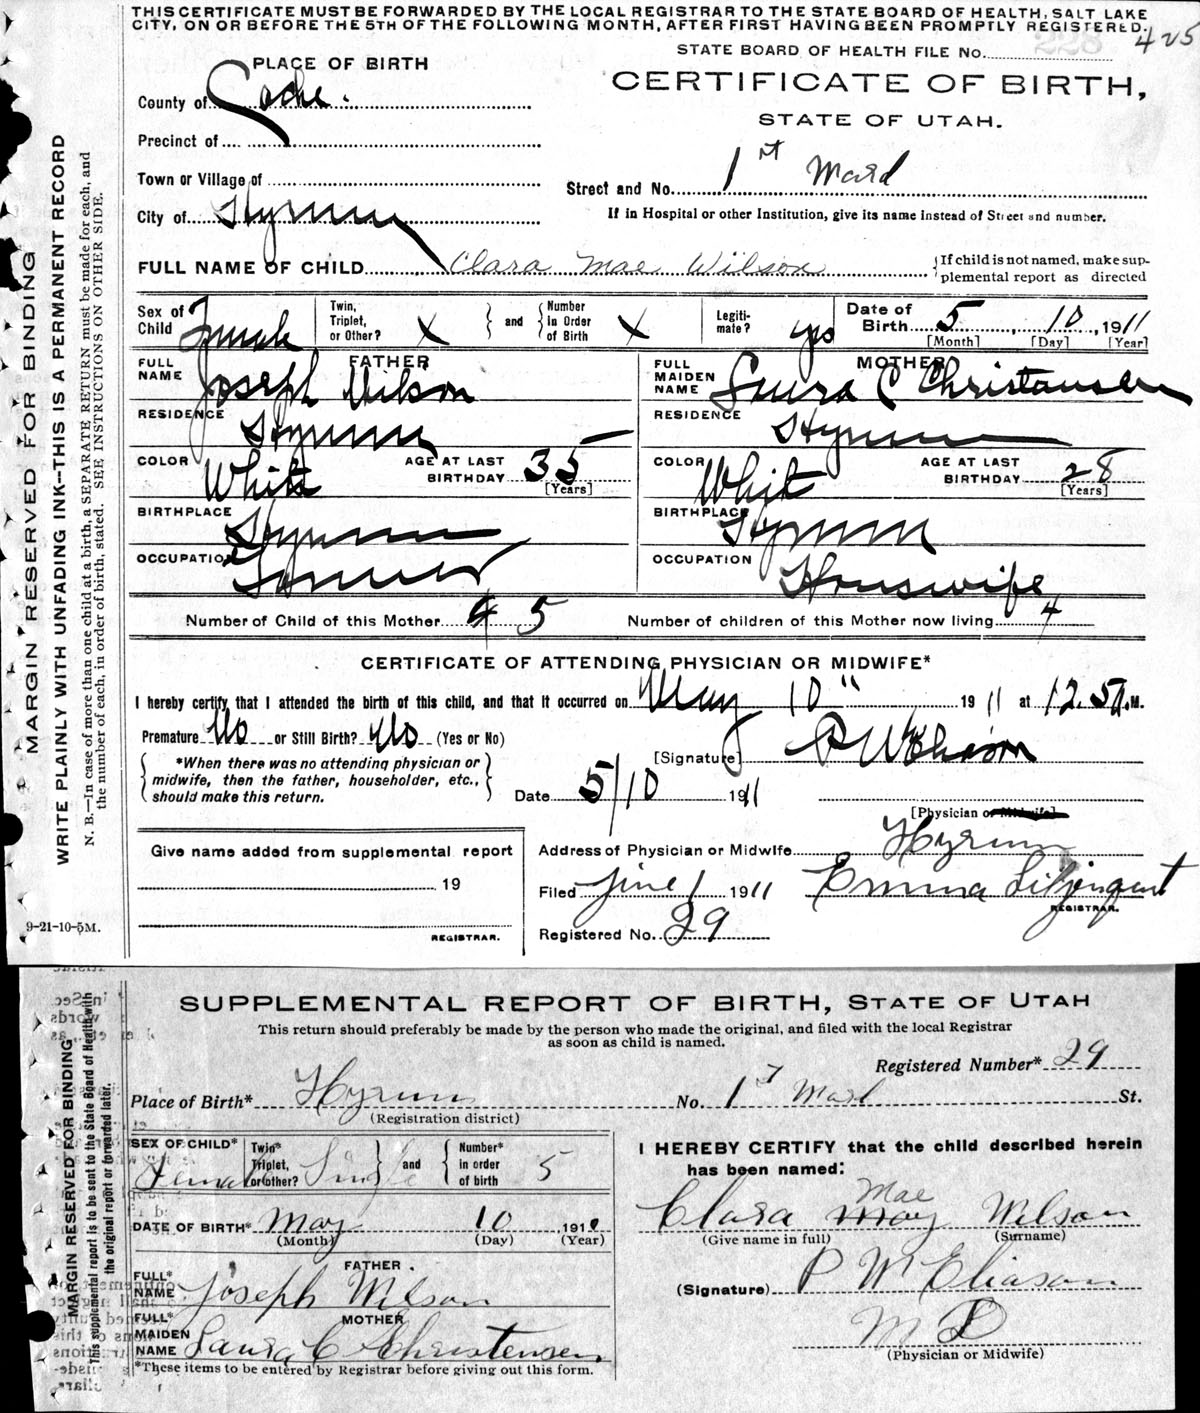 THIS CERTIFICATE MUST BE FORWARDED BY THE LOCAL REGISTRAR TO THE STATE BOARD OF HEALTH, SALT LAKE
CITY, ON OR BEFORE THE 5TH OF THE FOLLOWING MONTH, AFTER FIRST HAVING BEEN PROMPTLY REGISTERED.
228 425
STATE BOARD OF HEALTH FILE No.
PLACE OF BIRTH
CERTIFICATE OF BIRTH,
STATE OF UTAH.
County of Cache.
Precinct of
Town or Village of
Street and No. 1st Ward
City of Hyrum
If in Hospital or other Institution, give its name instead of Street and number.
FULL NAME OF CHILD Clara Mae Wilson
If child is not named, make supplemental report as directed
Sex of Child Female Twin, Triplet, or Other? X and Number in Order of Birth X Legitimate? yes Date of Birth 5, 10, 1911
[Month] [Day] [Year]
FATHER MOTHER
FULL NAME Joseph Wilson FULL MAIDEN NAME Laura C Christansen
RESIDENCE Hyrum RESIDENCE Hyrum
COLOR White AGE AT LAST BIRTHDAY 35 [Years] COLOR Whit AGE AT LAST BIRTHDAY 28 [Years]
BIRTHPLACE Hyrum BIRTHPLACE Hyrum
OCCUPATION Farmer OCCUPATION Housewife
Number of Child of this Mother 4 5 Number of children of this Mother now living 4
CERTIFICATE OF ATTENDING PHYSICIAN OR MIDWIFE*
I hereby certify that I attended the birth of this child, and that it occurred on May 10" 1911 at 12.50 A.M.
Premature No or Still Birth? No (Yes or No)
[Signature] P W Eliason
*When there was no attending physician or
midwife, then the father, householder, etc.,
should make this return.
Date 5/10 1911
[Physician or Midwife]
Address of Physician or Midwife Hyrum
Give name added from supplemental report
19
REGISTRAR.
Filed June 1 1911 Emma Liljenquist
REGISTRAR.
Registered No. 29
MARGIN RESERVED FOR BINDING
WRITE PLAINLY WITH UNFADING INK—THIS IS A PERMANENT RECORD
N. B.—In case of more than one child at a birth, a SEPARATE RETURN must be made for each, and
the number of each, in order of birth, stated. SEE INSTRUCTIONS ON OTHER SIDE.
9-21-10-5M.
SUPPLEMENTAL REPORT OF BIRTH, STATE OF UTAH
This return should preferably be made by the person who made the original, and filed with the local Registrar
as soon as child is named.
Registered Number* 29
Place of Birth* Hyrum No. 1st Ward St.
(Registration district)
SEX OF CHILD* Female Twin* Triplet, or other? Single and Number* in order of birth 5
DATE OF BIRTH* May 10 1911
(Month) (Day) (Year)
FATHER.
FULL* NAME Joseph Wilson
MOTHER
FULL* MAIDEN NAME Laura C Christensen
*These items to be entered by Registrar before giving out this form.
I HEREBY CERTIFY that the child described herein
has been named:
Mae
Clara May Wilson
(Give name in full) (Surname)
(Signature) P W Eliason
M D
(Physician or Midwife)
MARGIN RESERVED FOR BINDING
This supplemental report is to be sent to the State Board of Health with
the original report or forwarded later.